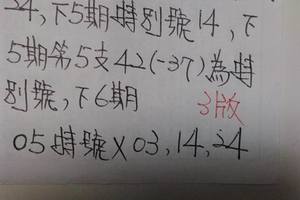 24,下5期特別號14,下
5期第5支42(-37)為特
別號,下6期
3版
05特號X03,14,24